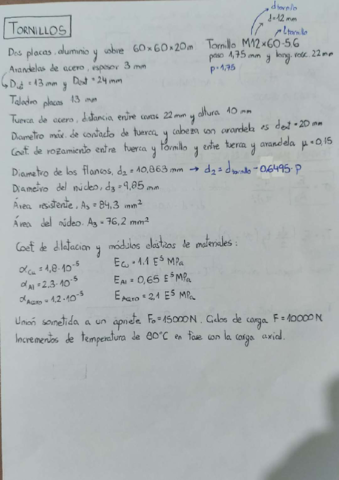 TORNILLOS
diámetro
d=12mm
L tornillo
Dos placas, aluminio y cobre 60x60x20m
Tornillo M12x60-5.6
paso 1,75mm y long. rosc. 22mm
p=1,75
Arandelas de acero, espesor 3 mm
Dint = 13mm y Dext = 24mm
Taladro placas 13 mm
Tuerca de acero, distancia entre caras 22mm y altura 10 mm
Diámetro máx. de contacto de tuerca y cabeza con arandela es dext=20mm
Coef. de rozamiento entre tuerca y tornillo y entre tuerca y arandela µ=0,15
Diámetro de los flancos, d2 = 10,863mm → d2 = dtornillo - 0.6495·p
Diámetro del núcleo, d3 = 9,85mm
Área resistente, As = 84,3 mm²
Área del núcleo, A3 = 76,2 mm²
Coef. de dilatación y módulos elásticos de materiales:
αCu = 1,8·10⁻⁵ ECu = 1.1 E⁵ MPa
αAl = 2.3·10⁻⁵ EAl = 0,65 E⁵ MPa
αAcero = 1.2·10⁻⁵ EAcero = 2.1 E⁵ MPa
Unión sometida a un apriete Fm=15000N. Ciclos de carga F=10000N
Incrementos de temperatura de 80°C en fase con la carga axial.